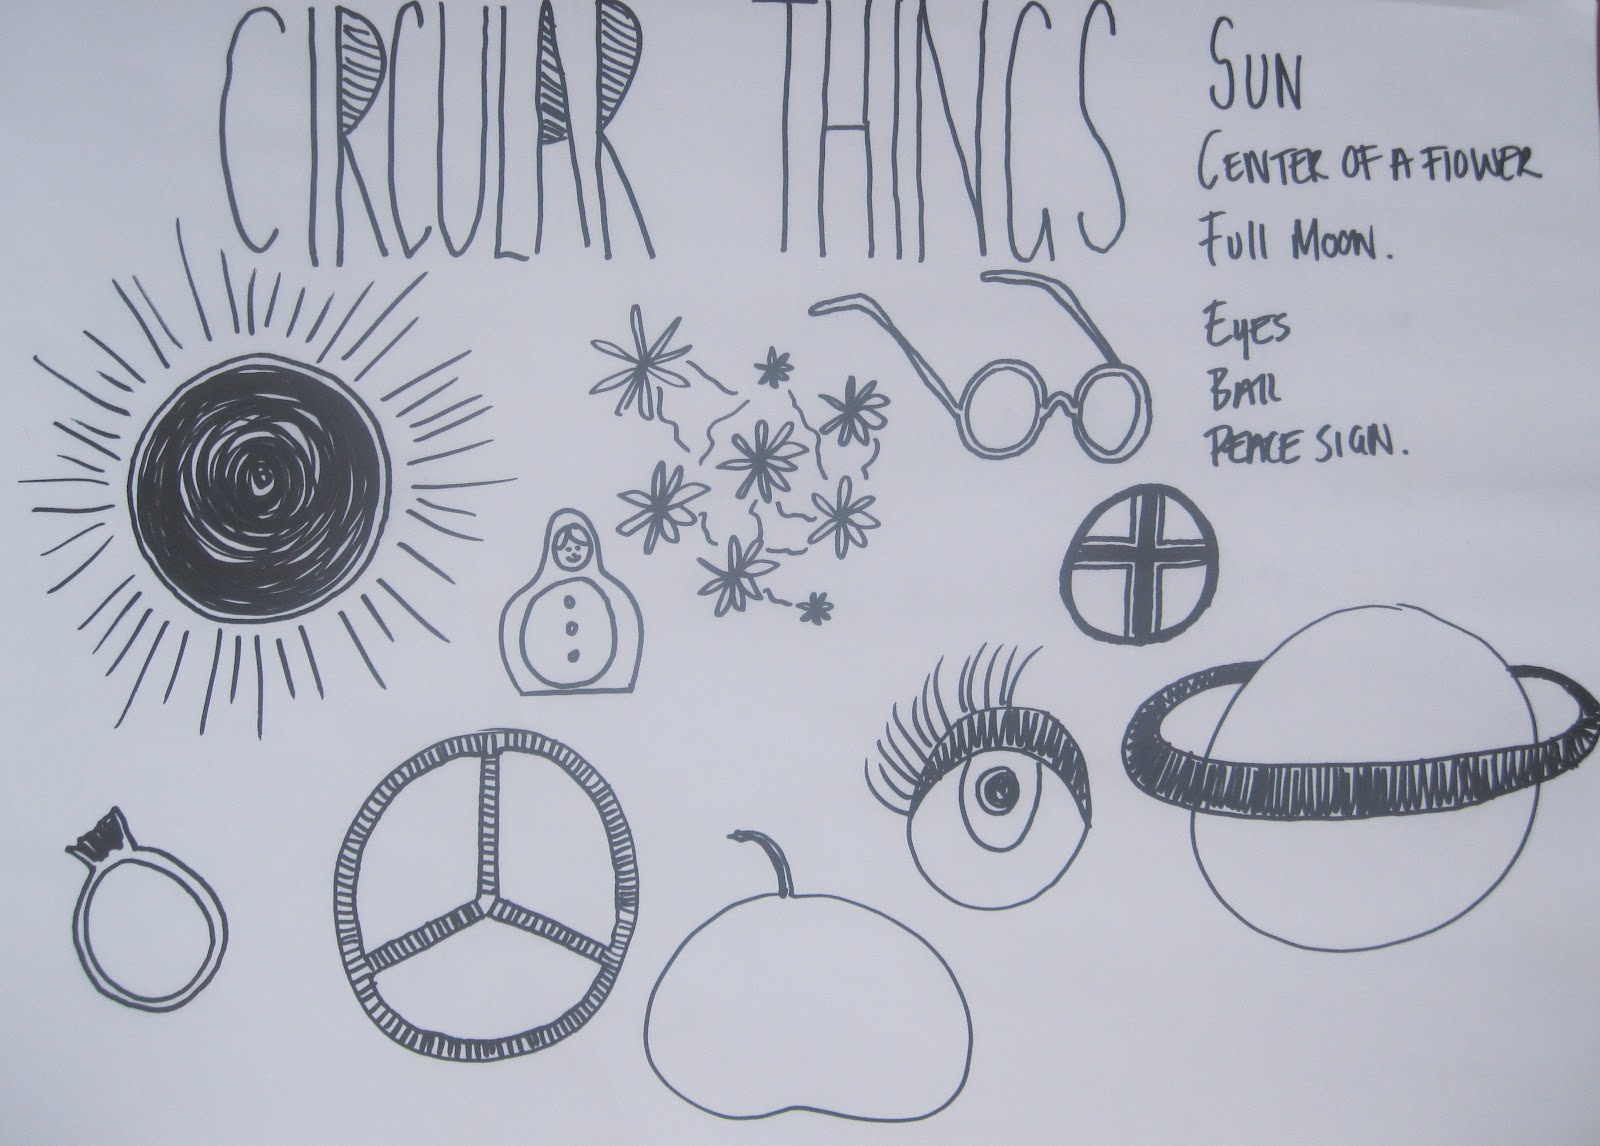 CIRCULAR THINGS
SUN
CENTER OF A FlOWER
Full MOON.
EyES
BAll
PEACE SIGN.